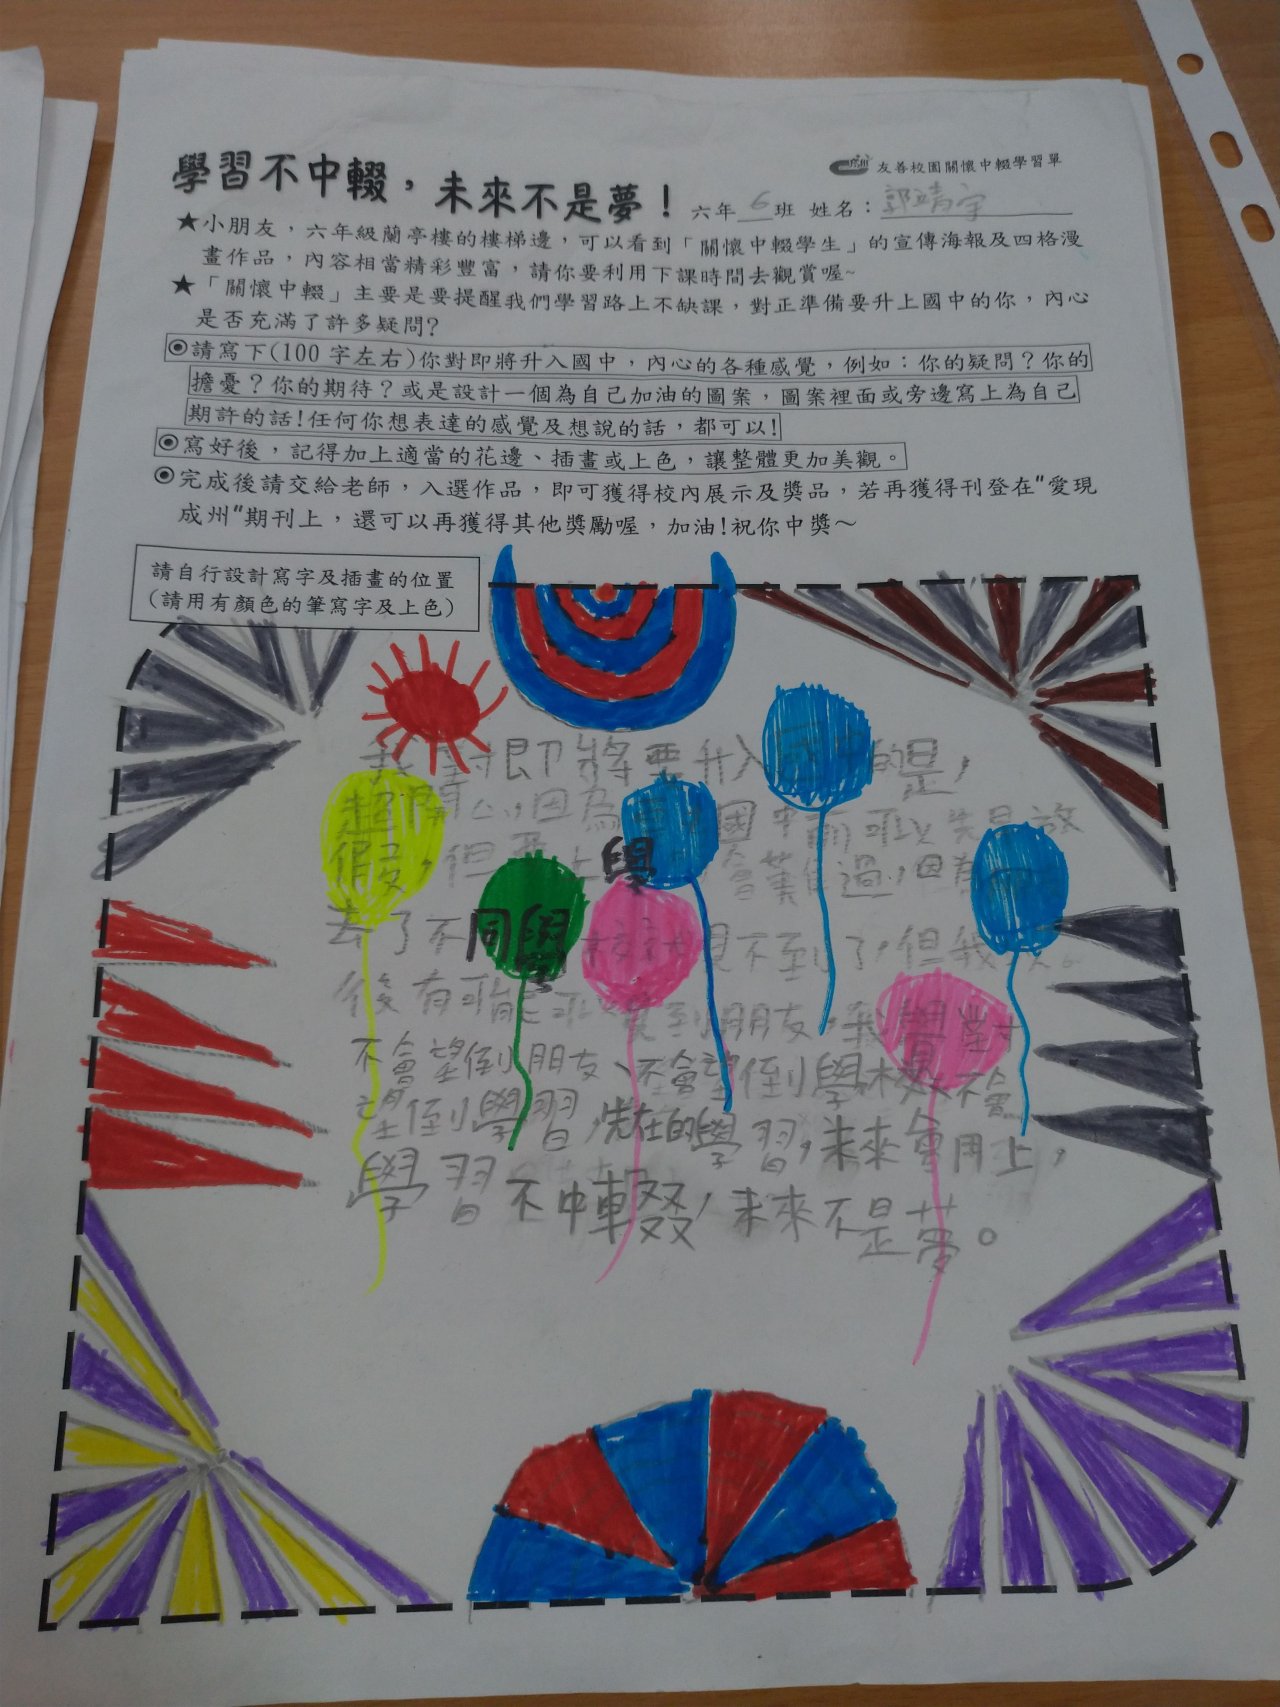 學習不中輟，未來不是夢！
友善校園關懷中輟學習單
六年 6 班 姓名：郭靖宇
★小朋友，六年級蘭亭樓的樓梯邊，可以看到「關懷中輟學生」的宣傳海報及四格漫
畫作品，內容相當精彩豐富，請你要利用下課時間去觀賞喔~
★「關懷中輟」主要是要提醒我們學習路上不缺課，對正準備要升上國中的你，內心
是否充滿了許多疑問?
◉請寫下(100 字左右)你對即將升入國中，內心的各種感覺，例如：你的疑問？你的
擔憂？你的期待？或是設計一個為自己加油的圖案，圖案裡面或旁邊寫上為自己
期許的話!任何你想表達的感覺及想說的話，都可以!
◉寫好後，記得加上適當的花邊、插畫或上色，讓整體更加美觀。
◉完成後請交給老師，入選作品，即可獲得校內展示及獎品，若再獲得刊登在"愛現
成州"期刊上，還可以再獲得其他獎勵喔，加油!祝你中獎～
請自行設計寫字及插畫的位置
（請用有顏色的筆寫字及上色）
我對即將要升入國中的是，
超開心，因為國中前可以先放
假，但 上學會 過，因有
去了不同學校就見不到了，但我
後有可能可以 到朋友，我 對
不會望倒朋友、不會望倒學校、不會
望倒學習，先在的學習，未來會用上，
學習不中輟，未來不是夢。